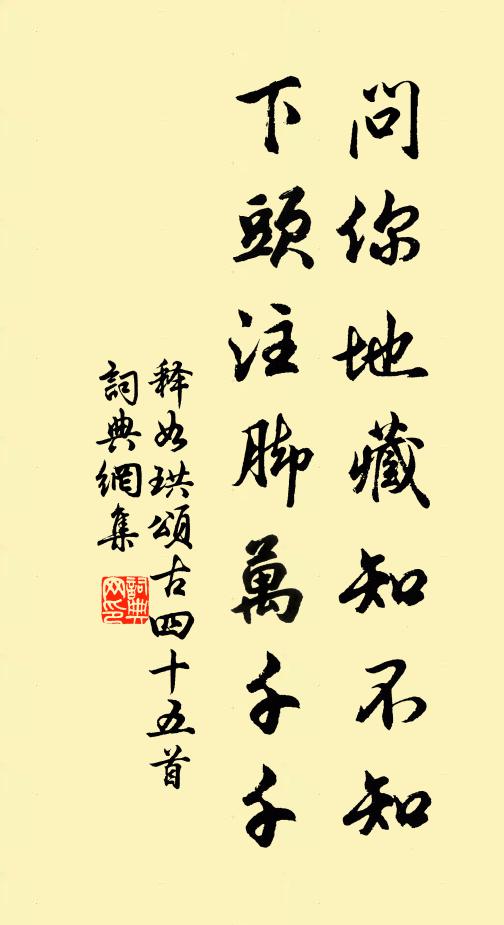 問你地藏知不知
下頭注脚萬千千
释如珙頌古四十五首
詞典網集
詞典網印